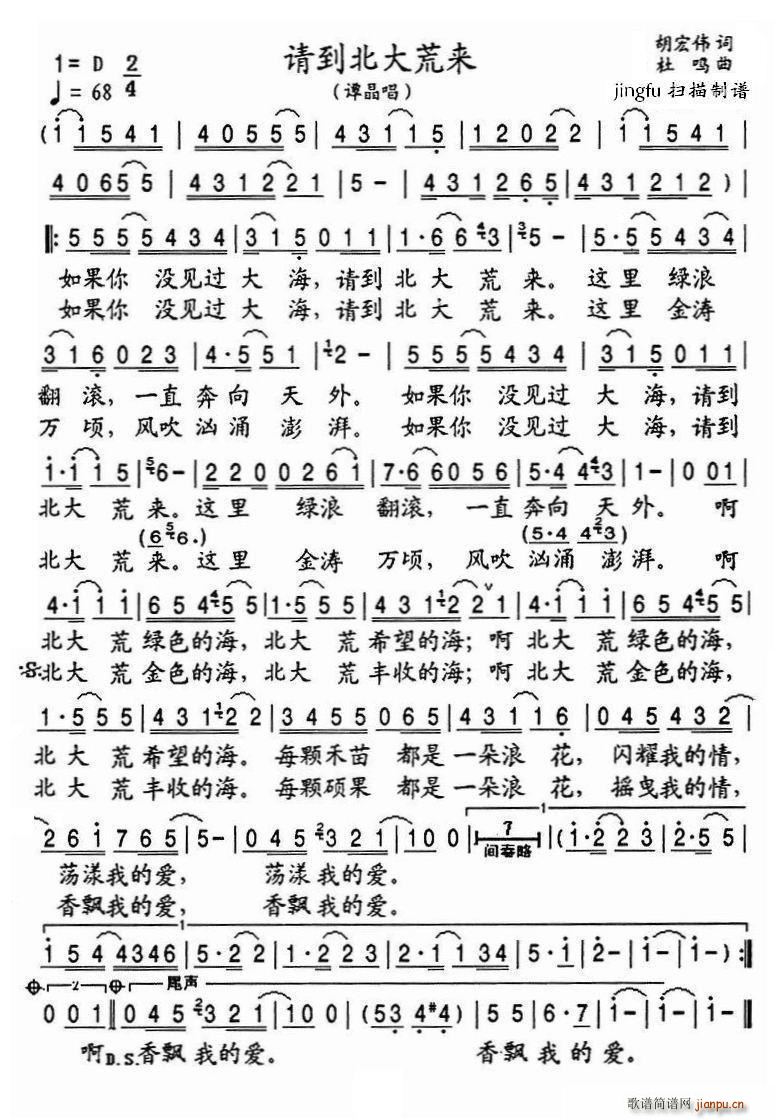 1=D 2/4
♩=68
请到北大荒来
（谭晶唱）
胡宏伟 词
杜 鸣 曲
jingfu 扫描制谱
(1 1 5 4 1 | 4 0 5 5 5 | 4 3 1 1 5 | 1 2 0 2 2 | 1 1 5 4 1 |
4 0 6 5 5 | 4 3 1 2 2 1 | 5 - | 4 3 1 2 6 5 | 4 3 1 2 1 2 ) |
‖: 5 5 5 5 4 3 4 | 3 1 5 0 1 1 | 1· 6 6 4/3 | 3/5 - | 5· 5 5 4 3 4 |
如果你 没见过 大 海，请到 北 大 荒 来。 这 里 绿浪
如果你 没见过 大 海，请到 北 大 荒 来。 这 里 金涛
3 1 6 0 2 3 | 4· 5 5 1 | 1/2 - | 5 5 5 5 4 3 4 | 3 1 5 0 1 1 |
翻 滚，一直 奔向 天 外。 如果你 没见过 大 海，请到
万 顷，风吹 汹涌 澎 湃。 如果你 没见过 大 海，请到
1· 1 1 5 | 5/6 - | 2 2 0 0 2 6 1 | 7· 6 6 0 5 6 | 5· 4 4 4/3 | 1 - | 0 0 1 |
北大 荒 来。这 里 绿浪 翻滚，一直 奔向 天 外。 啊
(6 5/6·) (5·4 4 2/3)
北大 荒 来。这 里 金涛 万顷，风吹 汹涌 澎 湃。 啊
4· 1 1 1 | 6 5 4/5 5 | 1· 5 5 5 | 4 3 1 1/2 2 2 1 | 4· 1 1 1 | 6 5 4/5 5 |
北大 荒 绿色的海，北大 荒 希望的海；啊 北大 荒 绿色的海，
𝄋 北大 荒 金色的海，北大 荒 丰收的海；啊 北大 荒 金色的海，
1· 5 5 5 | 4 3 1 1/2 2 | 3 4 5 5 0 6 5 | 4 3 1 1 6 | 0 4 5 4 3 2 |
北 大 荒 希望的海。每颗禾苗 都是 一朵浪 花，闪耀我的情，
北 大 荒 丰收的海。每颗硕果 都是 一朵浪 花，摇曳我的情，
2 6 1 7 6 5 | 5 - | 0 4 5 2/3 2 1 | 1 0 0 | 7 | (1· 2 2 3 | 2· 5 5 |
间奏略
荡漾我的爱， 荡漾 我的爱。
香飘我的爱， 香飘 我的爱。
1 5 4 4 3 4 6 | 5· 2 2 | 1· 2 2 3 | 2· 1 1 3 4 | 5· 1 | 2 - | 1 - | 1 - ) :‖
2 尾声
0 0 1 ‖ 0 4 5 2/3 2 1 | 1 0 0 | (5 3 4 #4) | 5 5 | 6· 7 | 1 - | 1 - | 1 - ‖
啊 D.S. 香飘 我的爱。 香飘 我 的 爱。
歌谱简谱网
jianpu.cn